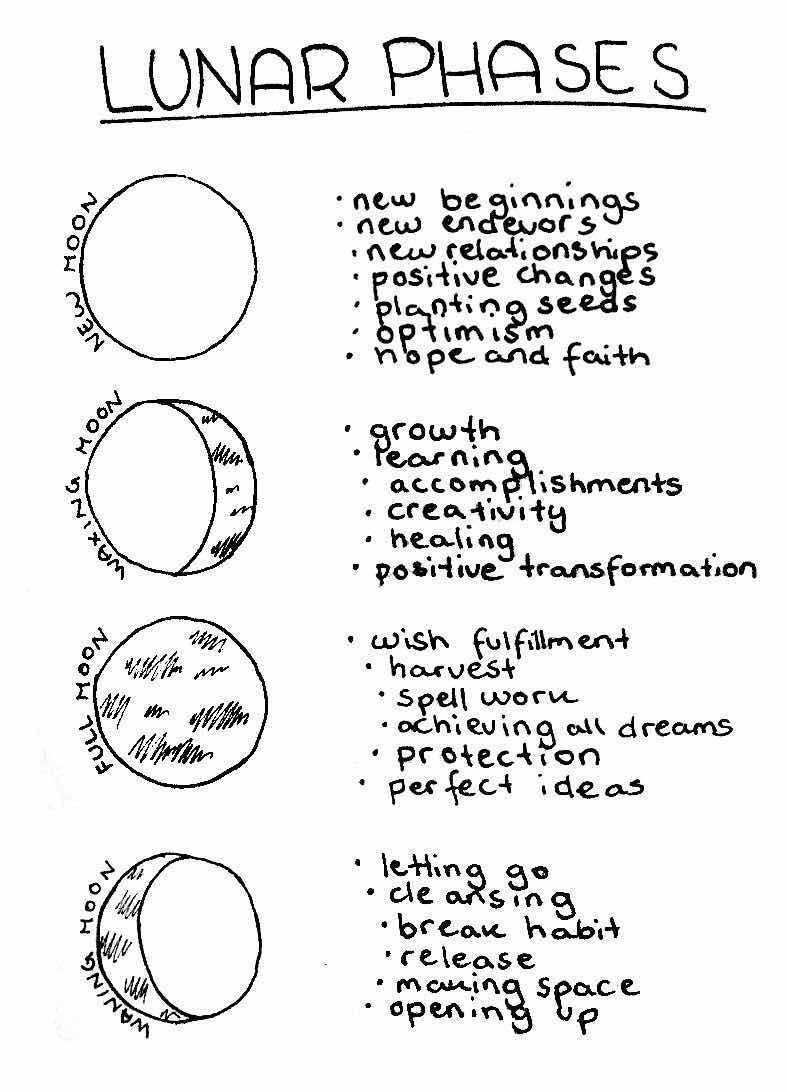 LUNAR PHASES
NEW MOON
· new beginnings
· new endevors
· new relationships
· positive changes
· planting seeds
· optimism
· hope and faith
WAXING MOON
· growth
· learning
· accomplishments
· creativity
· healing
· positive transformation
FULL MOON
· wish fulfillment
· harvest
· spell work
· achieving all dreams
· protection
· perfect ideas
WANING MOON
· letting go
· cleansing
· break habit
· release
· making space
· opening up